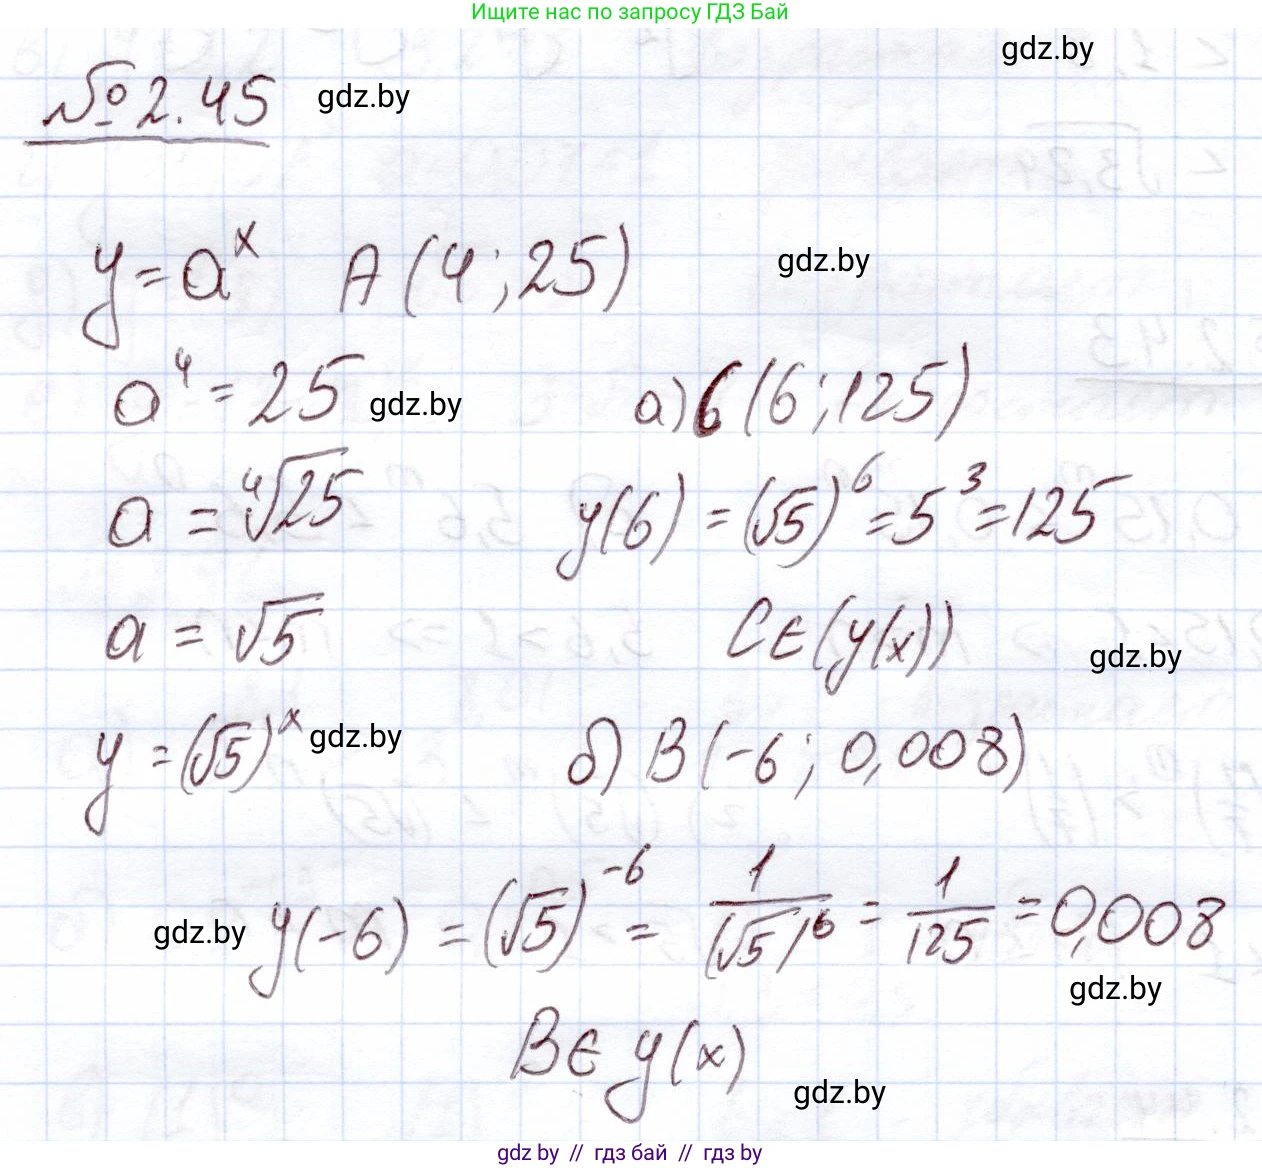 Ищите нас по запросу ГДЗ Бай
gdz.by
№ 2.45 gdz.by
y = a^x A (4; 25) gdz.by
a^4 = 25 gdz.by а) C (6; 125)
a = ∜25 y(6) = (√5)^6 = 5^3 = 125
a = √5 C ∈ (y(x)) gdz.by
y = (√5)^x gdz.by б) B (-6; 0,008)
gdz.by y(-6) = (√5)^-6 = 1/(√5)^6 = 1/125 = 0,008
gdz.by
B ∈ y(x)
gdz.by
gdz by // гдз бай // гдз by